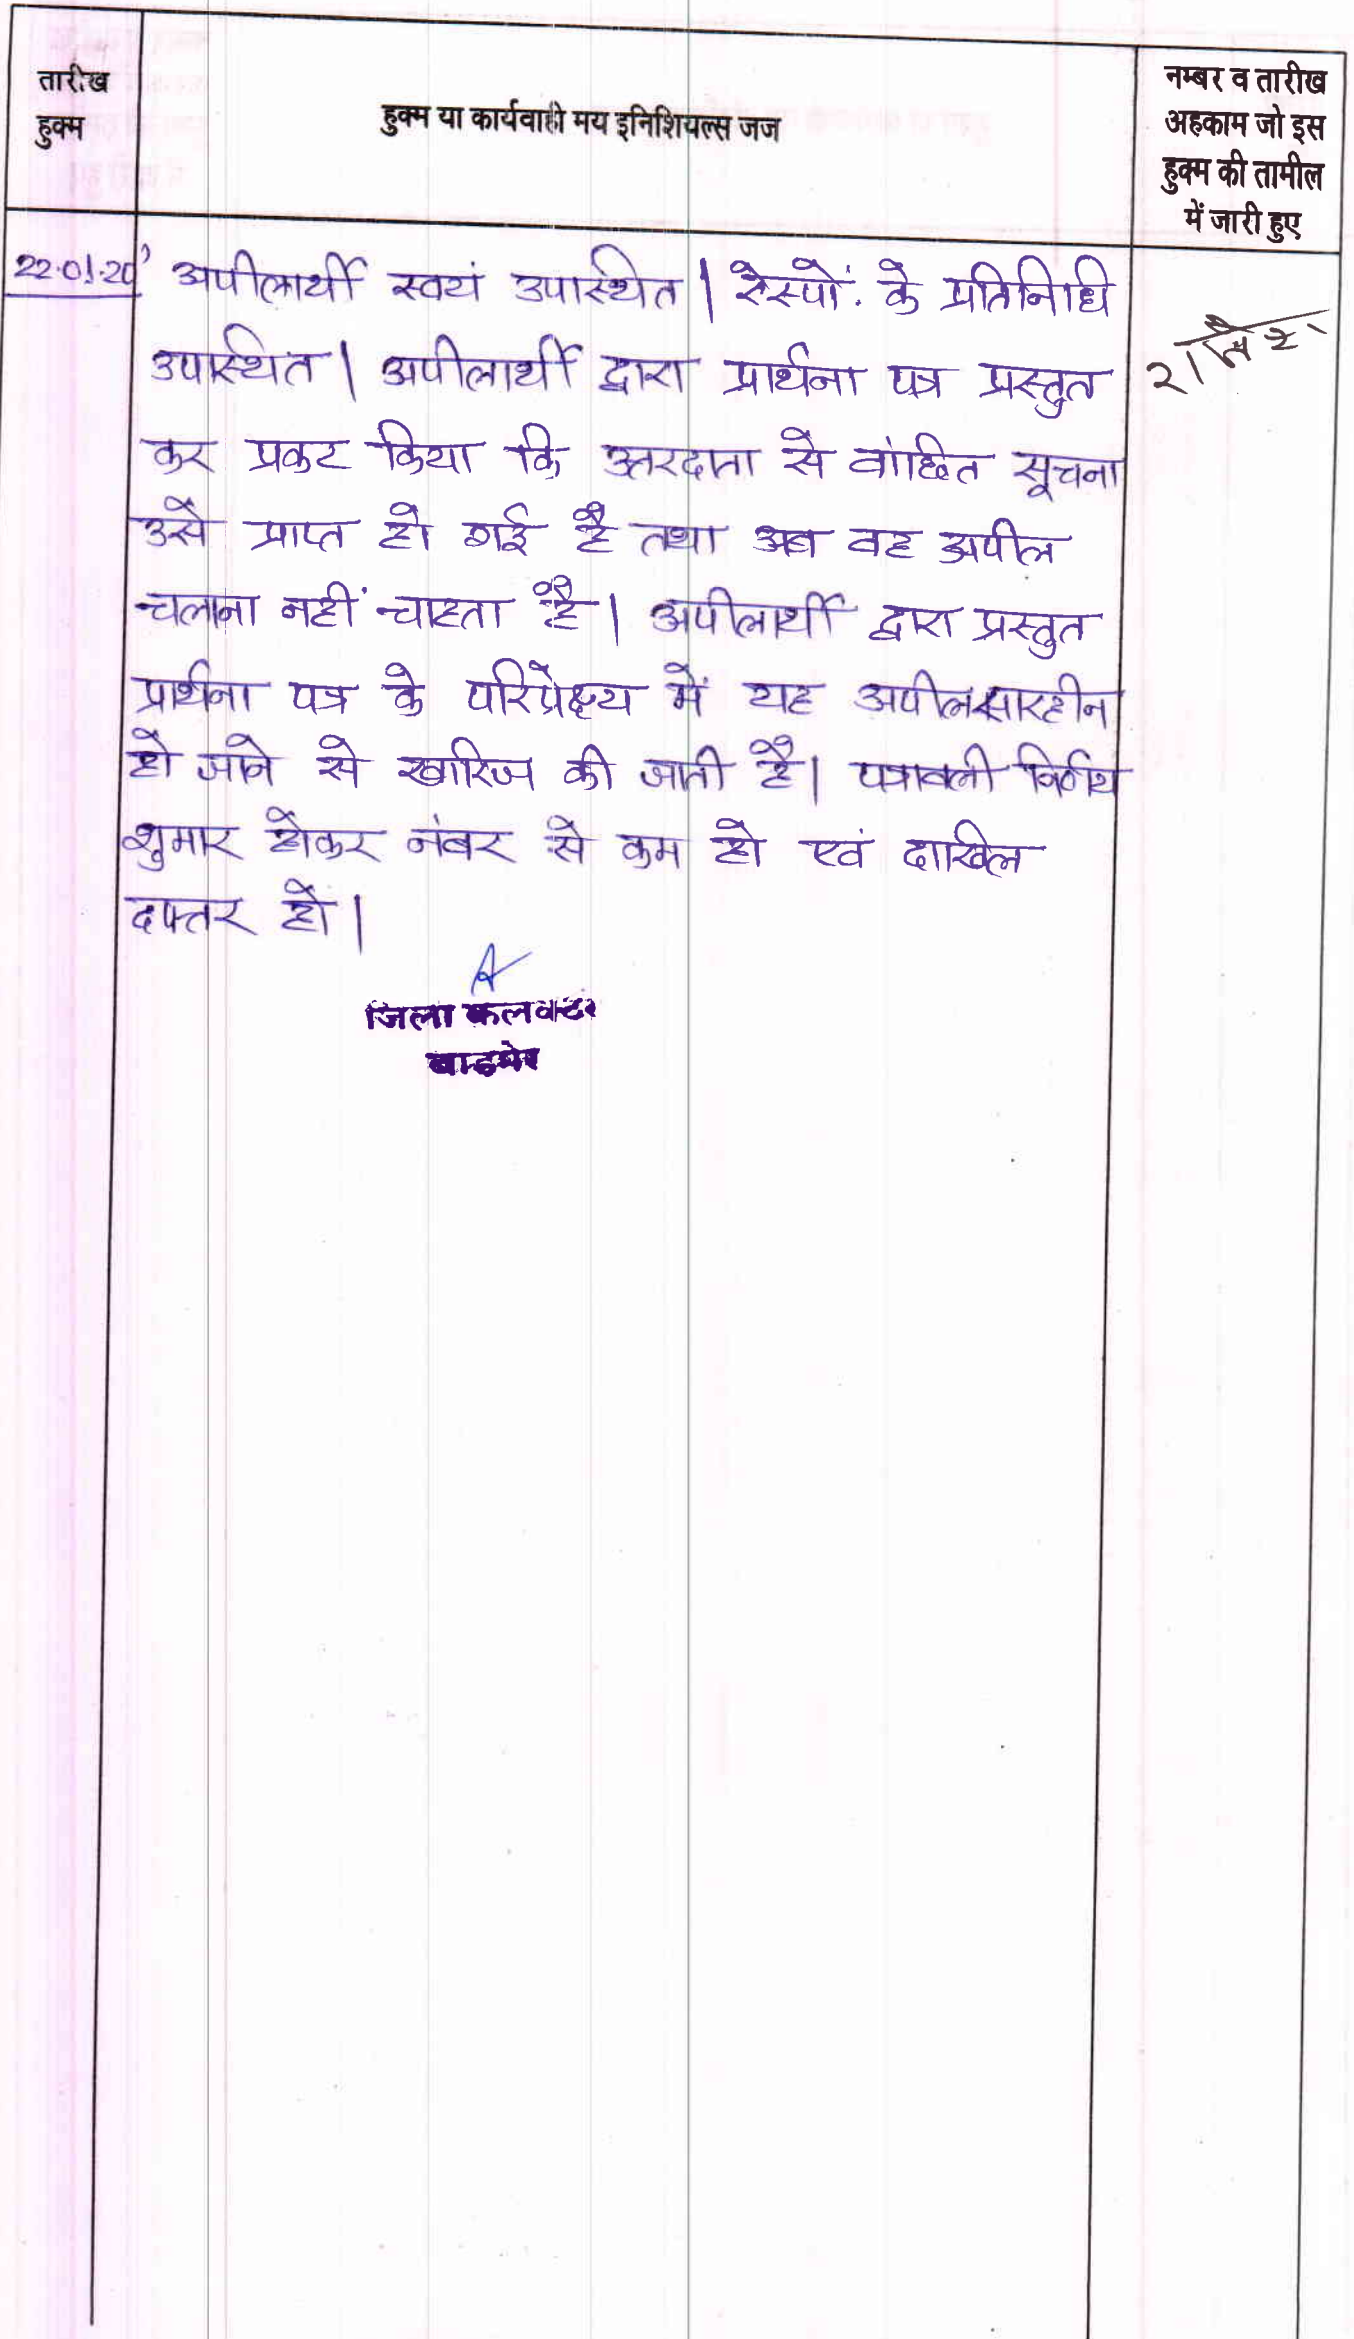 तारीख
हुक्म
हुक्म या कार्यवाही मय इनिशियल्स जज
नम्बर व तारीख
अहकाम जो इस
हुक्म की तामील
में जारी हुए
22.01.20
अपीलार्थी स्वयं उपस्थित | रेस्पों. के प्रतिनिधि
उपस्थित | अपीलार्थी द्वारा प्रार्थना पत्र प्रस्तुत
कर प्रकट किया कि उत्तरदाता से वांछित सूचना
उसे प्राप्त हो गई है तथा अब वह अपील
चलाना नहीं चाहता है | अपीलार्थी द्वारा प्रस्तुत
प्रार्थना पत्र के परिप्रेक्ष्य में यह अपील सारहीन
हो जाने से खारिज की जाती है | पत्रावली निर्णय
शुमार होकर नंबर से कम हो एवं दाखिल
दफ्तर हो |
जिला कलक्टर
बाड़मेर